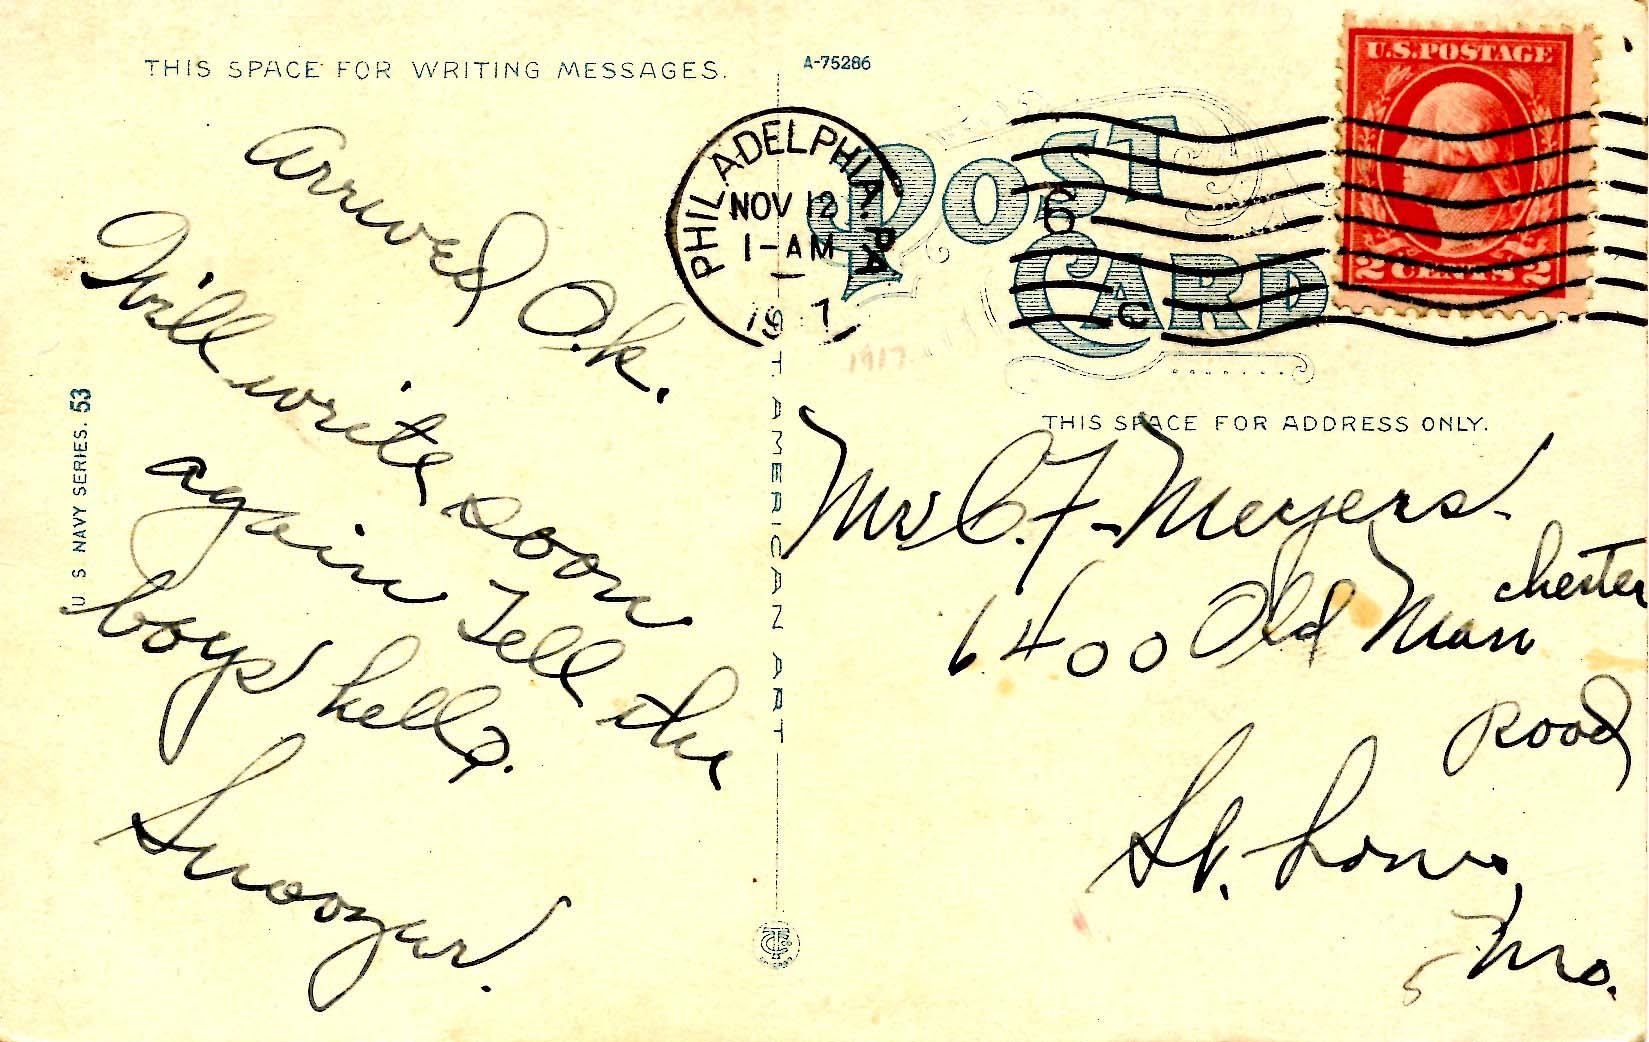 THIS SPACE FOR WRITING MESSAGES.
A-75286
U.S. POSTAGE
2 CENTS 2
PHILADELPHIA. PA
NOV 12
1-AM
POST CARD
6
C
1917
THIS SPACE FOR ADDRESS ONLY.
U S NAVY SERIES. 53
AMERICAN ART
Arrived O.k.
Will write soon
again Tell the
boys hello.
C.F. Meyers
6400 Old Manchester
Road
St. Louis,
Mo.
5